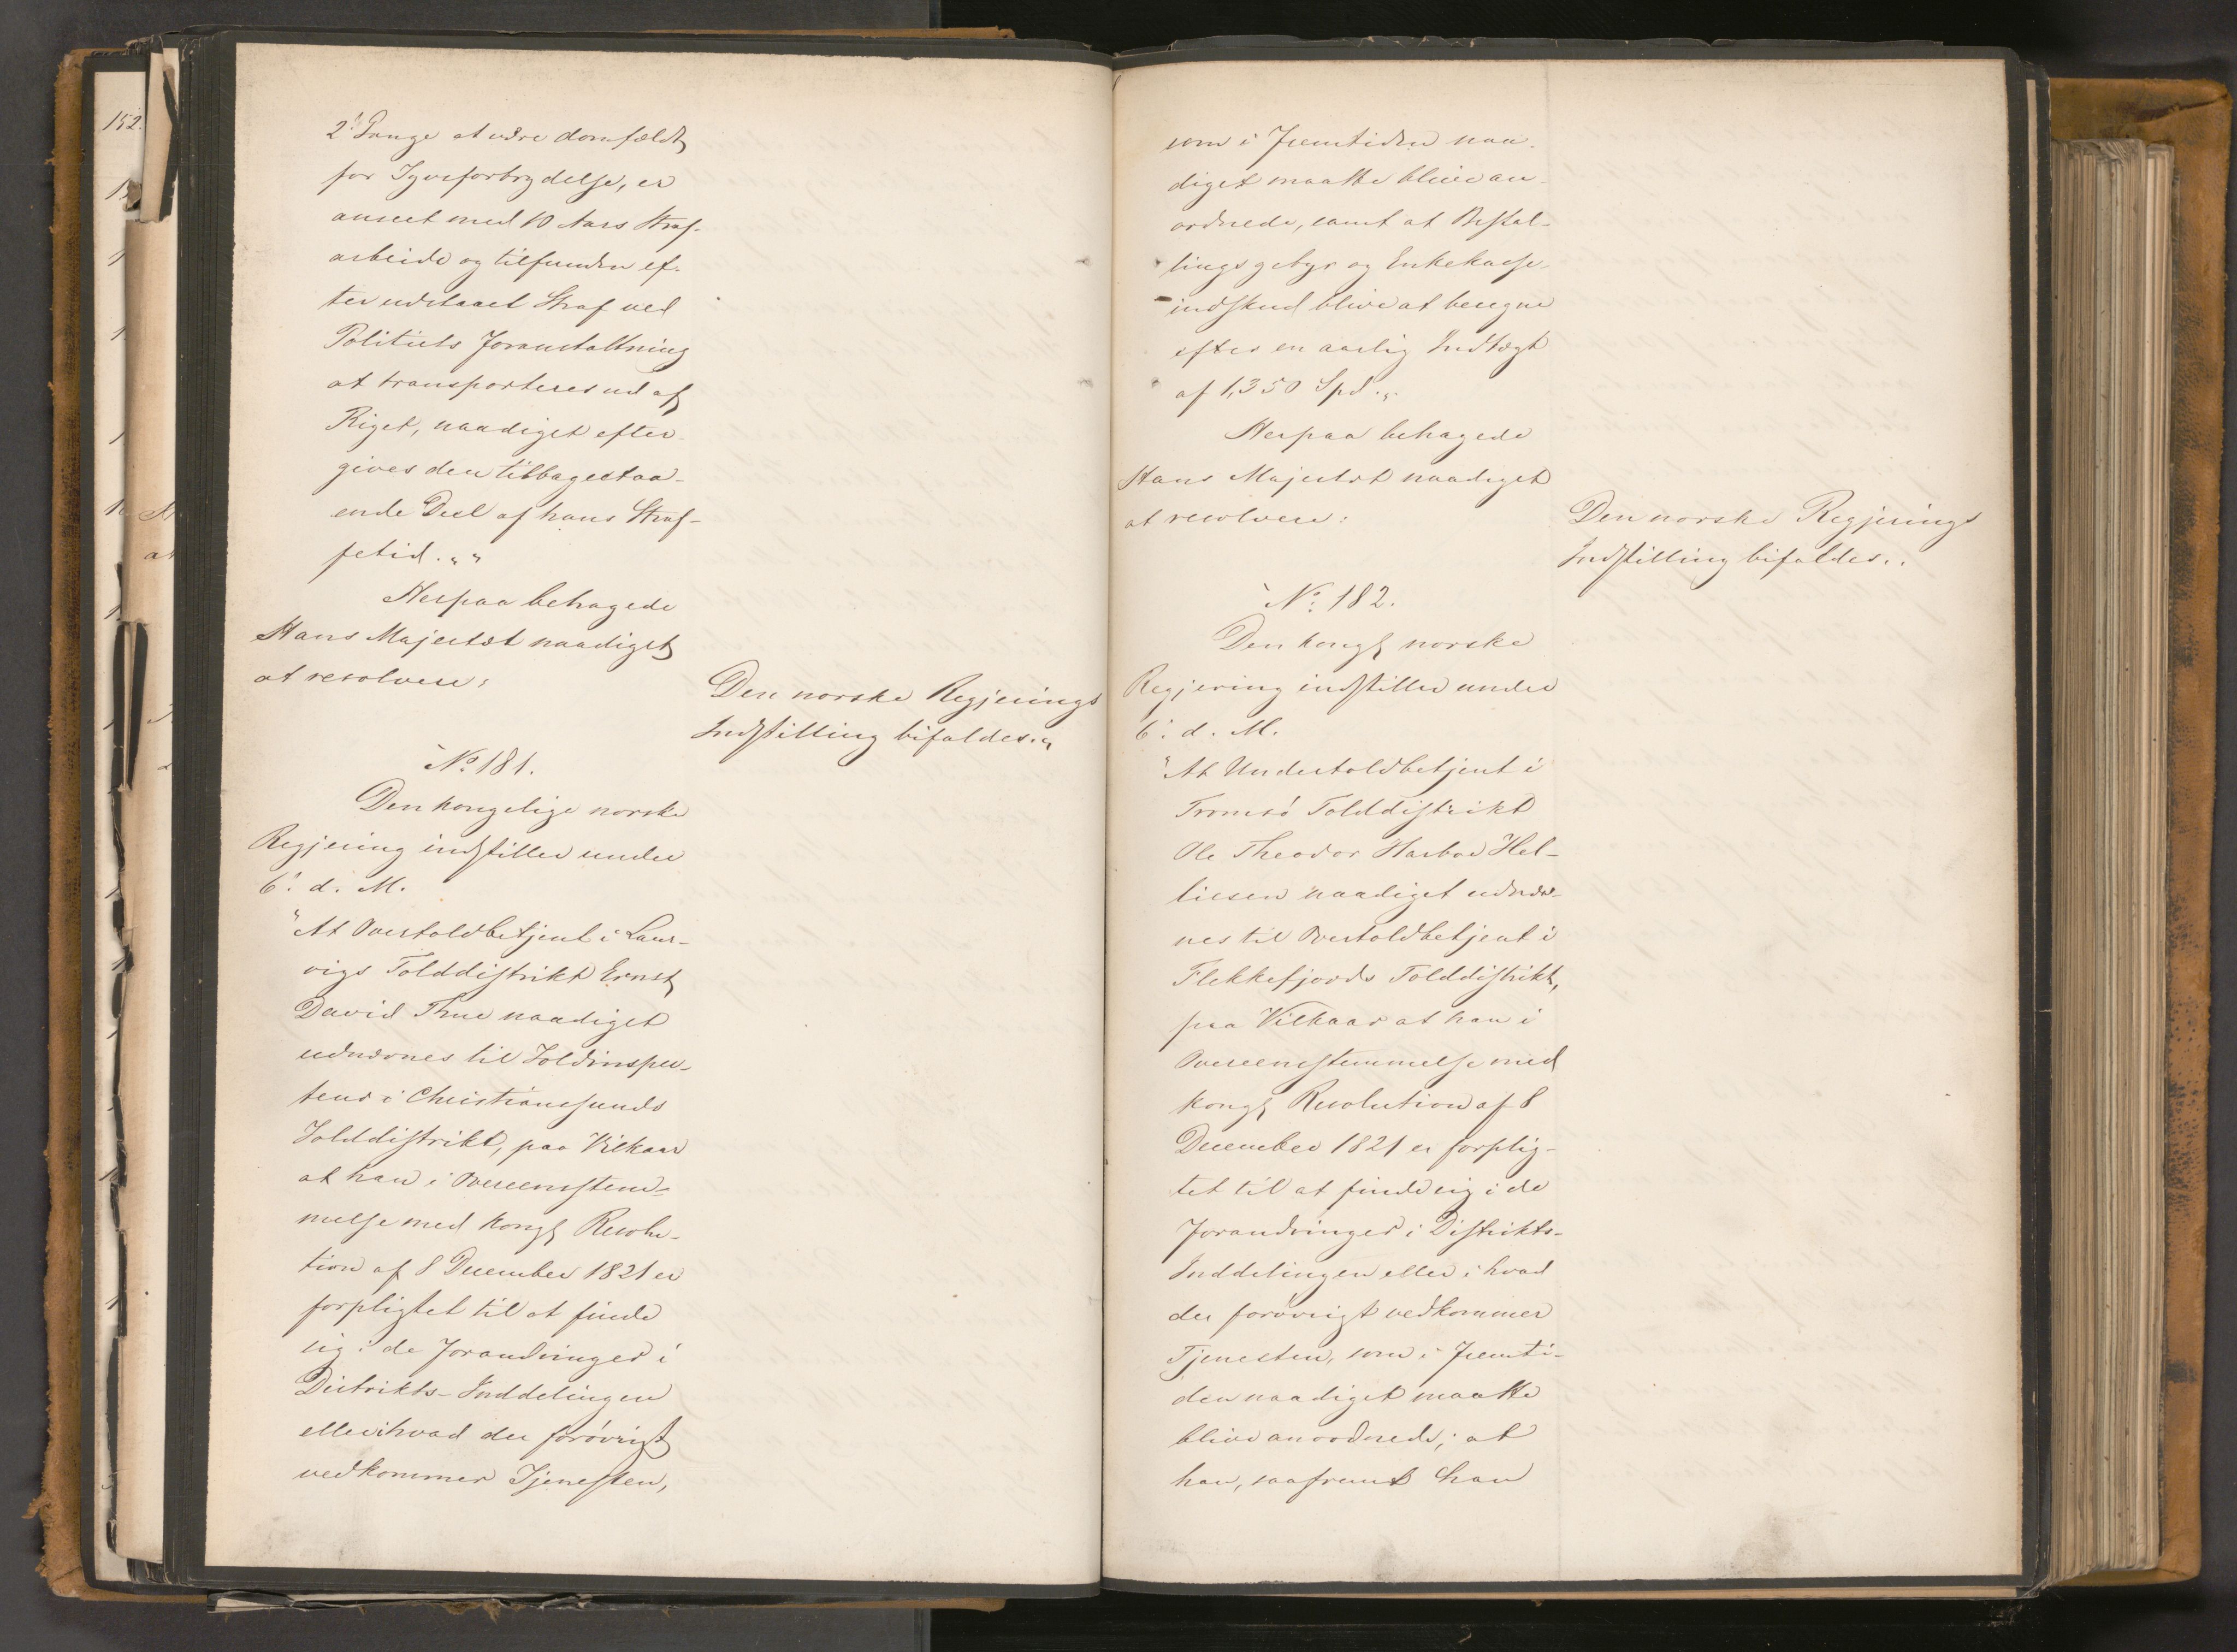 2.' Gange at være domfældt
for Tyvsforbrydelse, er
anseet med 10 Aars Straf-
arbeide og tilfunden ef-
ter udstaaet Straf ved
Politiets Foranstaltning
at transporteres ud af
Riget, naadigst efter-
gives den tilbagestaa-
ende Deel af hans Straf-
fetid.""
Herpaa behagede
Hans Majestæt naadigst
at resolvere:
Den norske Regjerings
Indstilling bifaldes."
No 181.
Den kongelige norske
Regjering indstiller under
6.' d. M.
"At Overtoldbetjent i Laur-
vigs Tolddistrikt Ernst
David Thue naadigst
udnævnes til Toldinspec-
teur i Christianssunds
Tolddistrikt, paa Vilkaar
at han i Overeensstem-
melse med kongl Resolu-
tion af 8 December 1821 er
forpligtet til at finde
sig i de Forandringer i
Distrikts-Inddelingen
eller i hvad der forövrigt
vedkommer Tjenesten,
som i Fremtiden naa-
digst maatte blive an-
ordnede, samt at Bestal-
lingsgebyr og Enkekasse-
indskud blive at beregne
efter en aarlig Indtægt
af 1,350 Spd."
Herpaa behagede
Hans Majestæt naadigst
at resolvere:
Den norske Regjerings
Indstilling bifaldes..
No. 182.
Den kongl norske
Regjering indstiller under
6.' d. M.
"At Undertoldbetjent i
Tromsö Tolddistrikt
Ole Theodor Harboe Hel-
liesen naadigst udnæv-
nes til Overtoldbetjent i
Flekkefjords Tolddistrikt,
paa Vilkaar at han i
Overeensstemmelse med
kongl Resolution af 8
December 1821 er forplig-
tet til at finde sig i de
Forandringer i Distrikts-
Inddelingen eller i hvad
der forövrigt vedkommer
Tjenesten, som i Fremti-
den naadigst maatte
blive anordnede; at
han, saafremt han